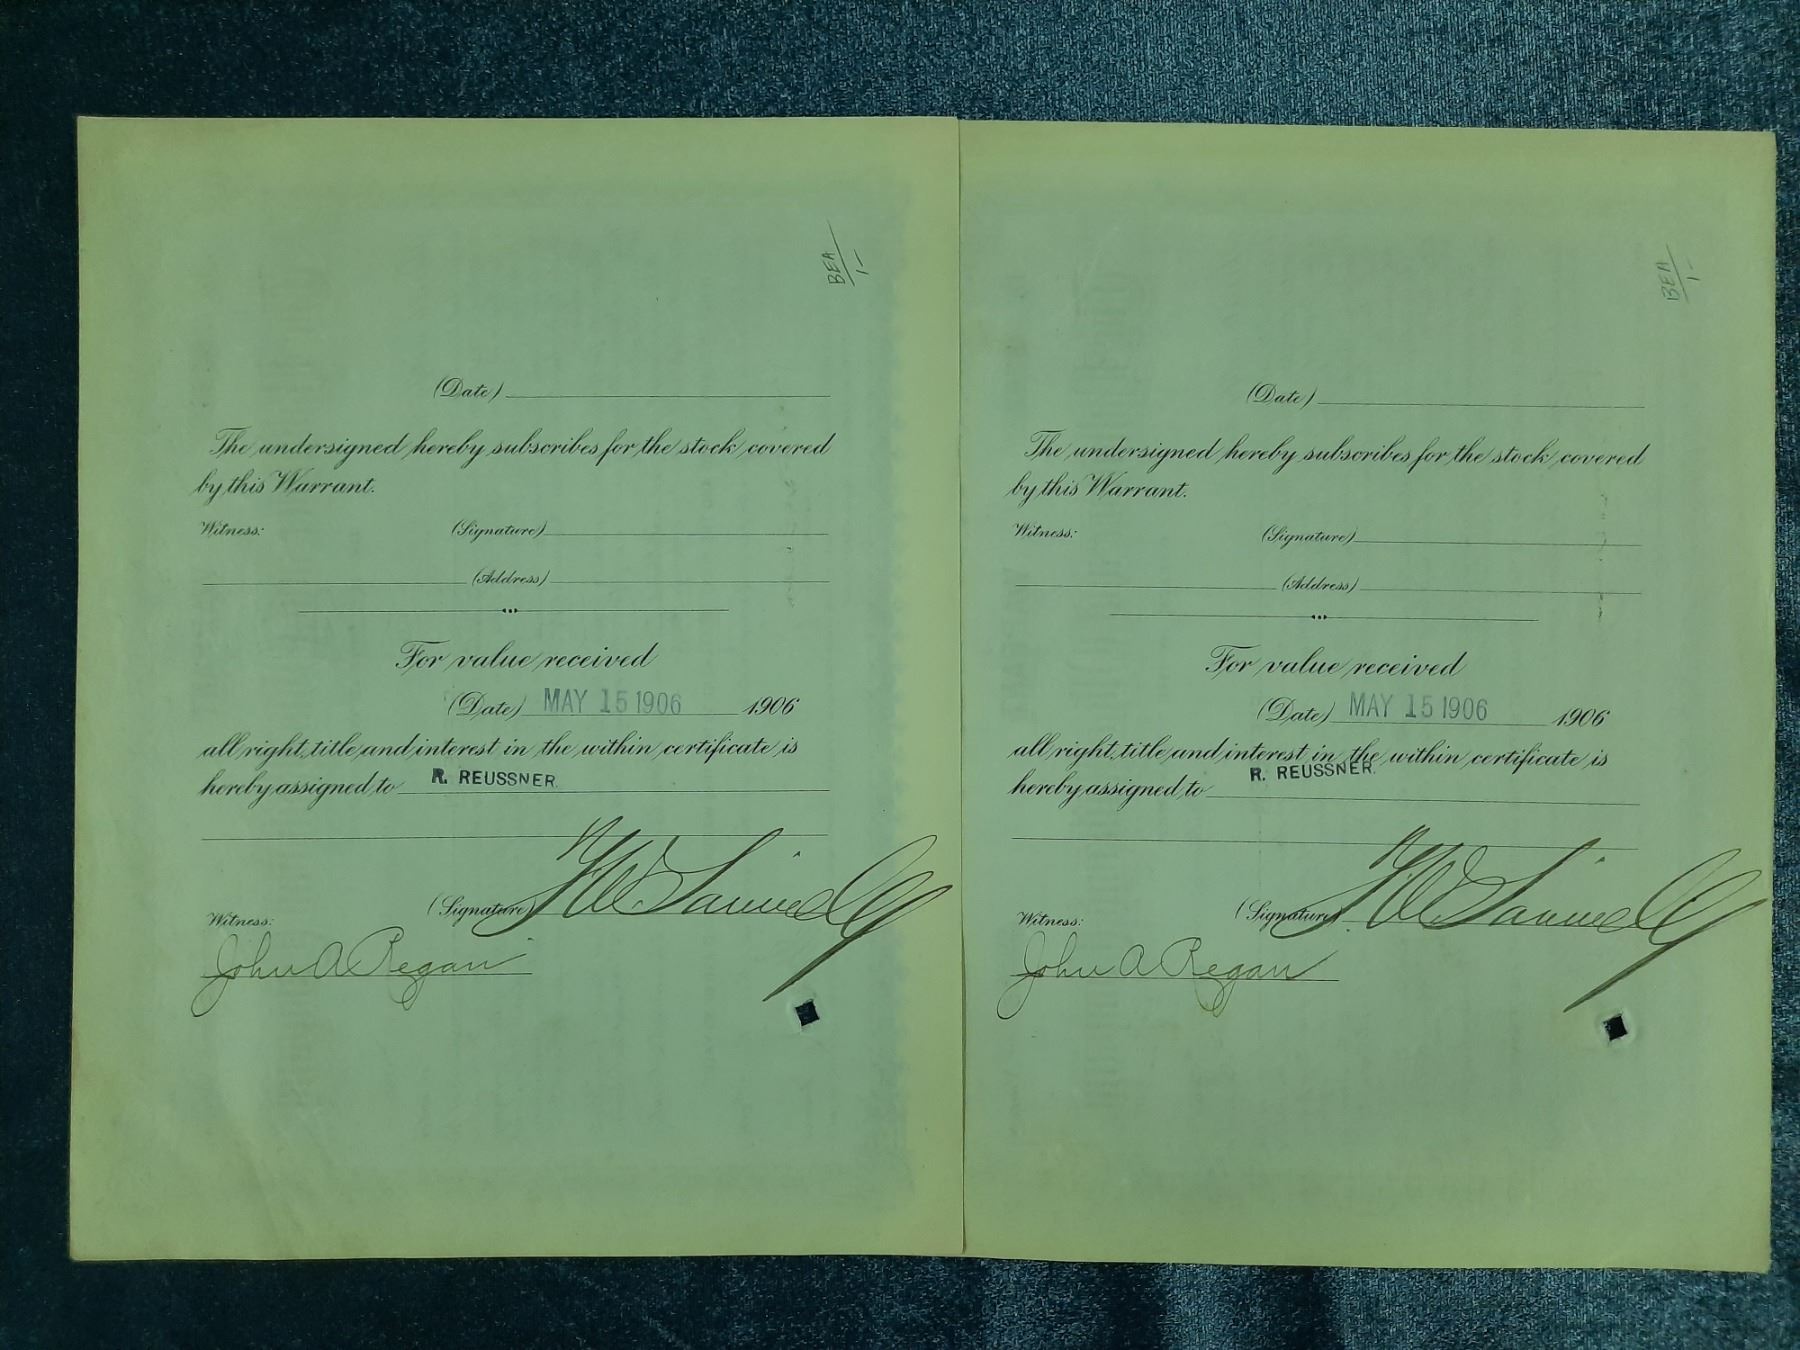 BEA
1-
(Date)
The undersigned hereby subscribes for the stock covered
by this Warrant.
Witness: (Signature)
(Address)
For value received
(Date) MAY 15 1906 1906
all right, title and interest in the within certificate is
hereby assigned to R. REUSSNER.
(Signature)
Witness:
John A Regan
BEA
1-
(Date)
The undersigned hereby subscribes for the stock covered
by this Warrant.
Witness: (Signature)
(Address)
For value received
(Date) MAY 15 1906 1906
all right, title and interest in the within certificate is
hereby assigned to R. REUSSNER.
(Signature)
Witness:
John A Regan